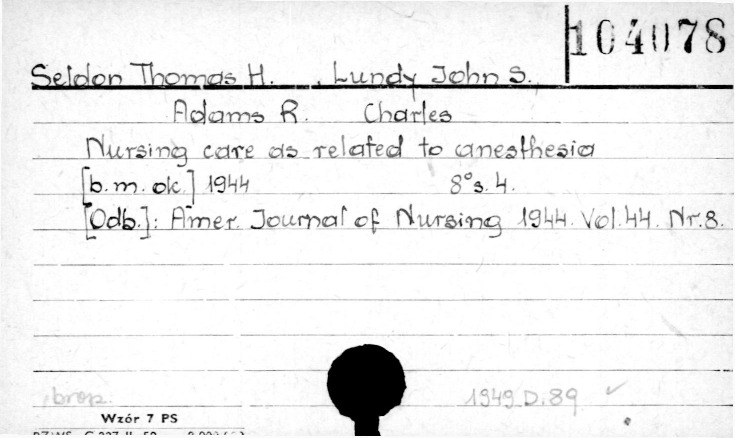 104078
Seldon Thomas H. , Lundy John S.,
Adams R. Charles
Nursing care as related to anesthesia
[b.m. ok.] 1944 8° s. 4.
[Odb.]: Amer. Journal of Nursing 1944. Vol. 44. Nr. 8.
brosz. 1949 D. 89 ✓
Wzór 7 PS